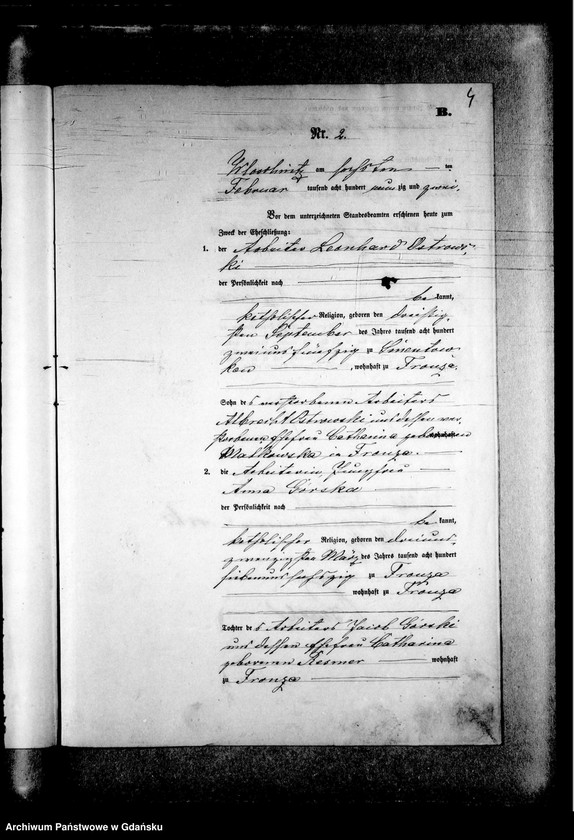 4
B.
Nr. 2.
am sechsten den
Februar tausend acht hundert neun zig und zwei.
Vor dem unterzeichneten Standesbeamten erschienen heute zum
Zweck der Eheschließung:
1. der Arbeiter Leonhard Ostrows-
ki
der Persönlichkeit nach
be kannt,
katholischer Religion, geboren den dreißig-
sten September des Jahres tausend acht hundert
zweiundfünfzig zu
ken, wohnhaft zu Fronza.
Sohn des verstorbenen Arbeiters
Albrecht Ostrowski und dessen ver-
storbenen Ehefrau Catharina geborenen
Malkowska in Fronza.
2. die Arbeiterin, Jungfrau
Anna Gorska
der Persönlichkeit nach
be kannt,
katholischer Religion, geboren den dreiund-
zwanzigsten März des Jahres tausend acht hundert
siebenundsechszig zu Fronza
wohnhaft zu Fronza
Tochter des Arbeiters Jacob Gorski
und dessen Ehefrau Catharina
geborenen Resmer wohnhaft
zu Fronza
Archiwum Państwowe w Gdańsku